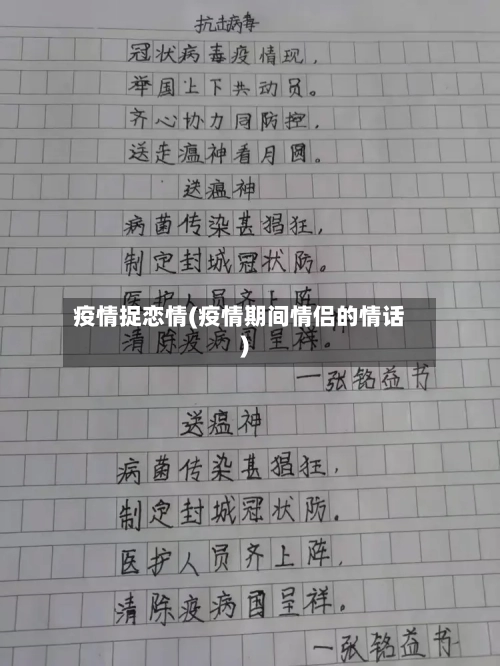 抗击病毒
冠状病毒疫情现，
举国上下共动员。
齐心协力同防控，
送走瘟神看月圆。
送瘟神
病菌传染甚猖狂，
制定封城冠状防。
医护人员齐上阵
疫情捉恋情(疫情期间情侣的情话
)
清除疫病国呈祥。
一张铭益书
送瘟神
病菌传染甚猖狂，
制定封城冠状防。
医护人员齐上阵，
清除疫病国呈祥。
一张铭益书